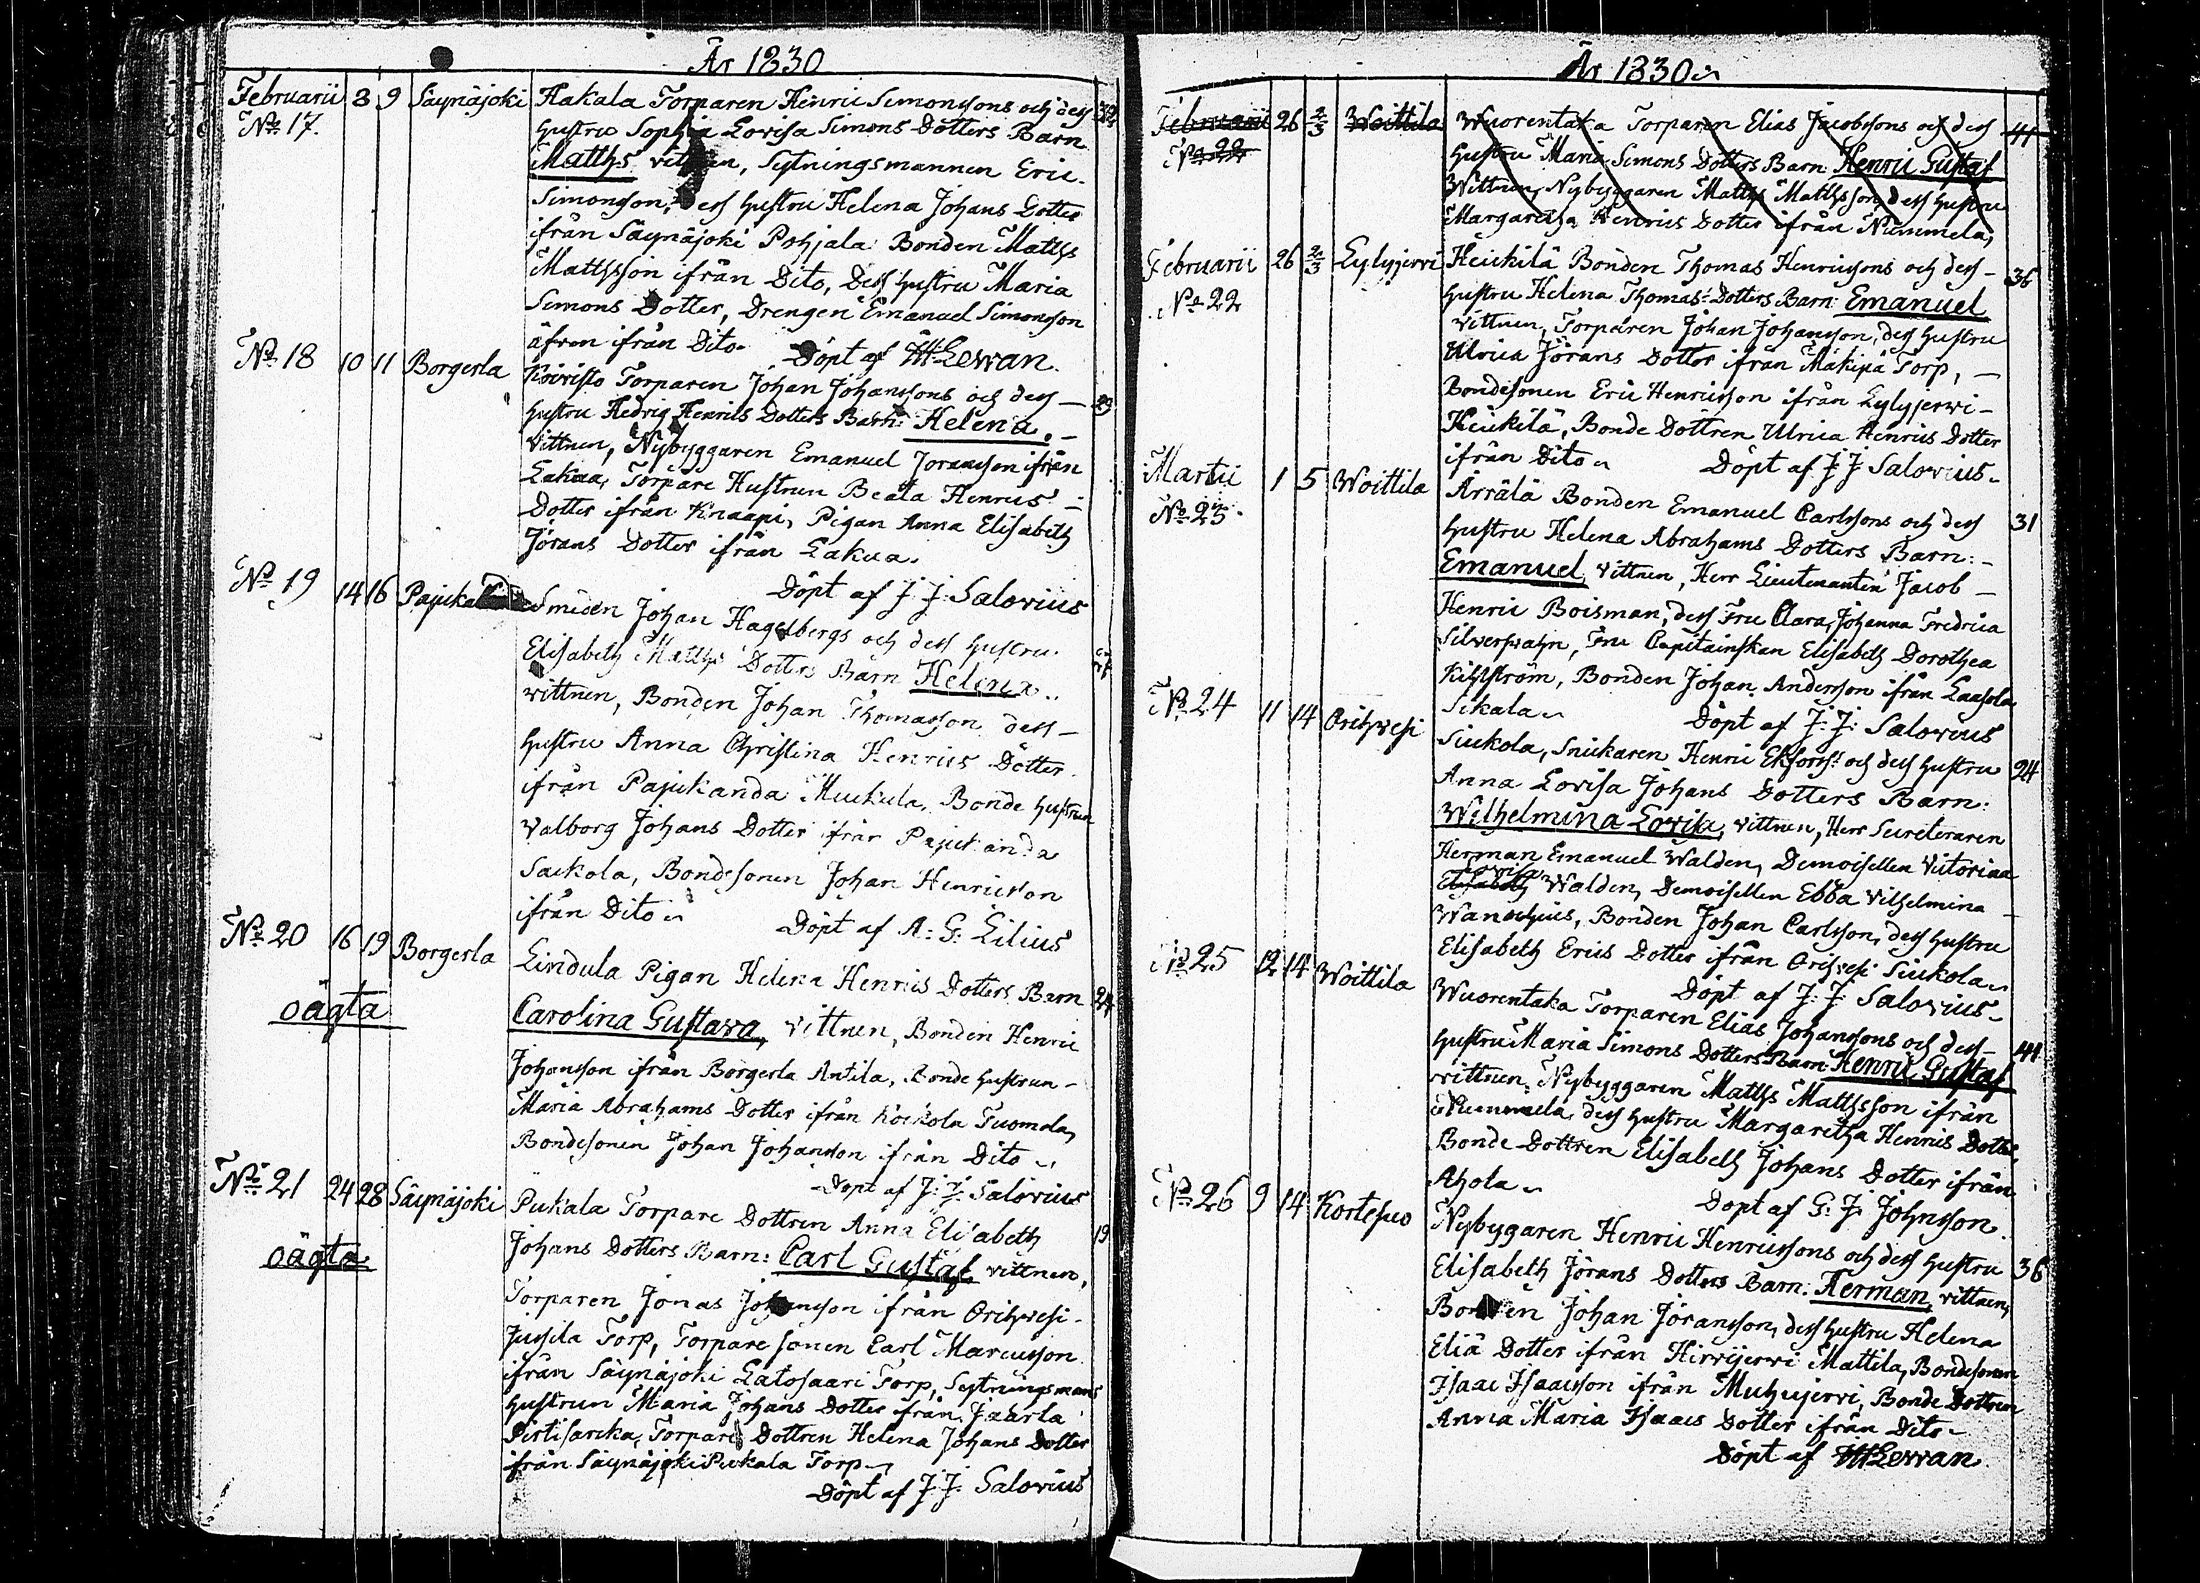 År 1830
Februarii 8 9 Säynäjoki Hakala Torparen Henric Simonssons och dess
No 17. hustru Sophia Lovisa Simons Dotters Barn
Matths vittnen, Sytningsmannen Eric
Simonsson, dess hustru Helena Johans Dotter
ifrån Säynäjoki Pohjala Bonden Matths
Mattsson ifrån Dito, Dess hustru Maria
Simons Dotter, Drengen Emanuel Simonsson
äfven ifrån Dito. Döpt af M Lewan.
No 18 10 11 Borgerla Koivisto Torparen Johan Johanssons och dess
hustru Hedvig Henrics Dotters Barn: Helena,
Vittnen, Nybyggaren Emanuel Joransson ifrån
Lakua, Torpare Hustrun Beata Henrics
Dotter ifrån Knaapi, Pigan Anna Elisabeth
Jörans Dotter ifrån Lakua.
Döpt af J. J. Salovius
No 19 14 16 Smeden Johan Hagelbergs och dess hustru
Elisabeth Matths Dotters Barn Helena
vittnen, Bonden Johan Thomasson dess
hustru Anna Christina Henrics Dotter
ifrån Pajukanda Muckula, Bonde hustrun
Valborg Johans Dotter ifrån Pajukanda
Sackola, Bondesonen Johan Henricsson
ifrån Dito Döpt af A: G: Lilius
No 20 16 19 Borgerla Lindula Pigan Helena Henrics Dotters Barn 24
oägta Carolina Gustava, vittnen, Bonden Henric
Johansson ifrån Borgerla Antila, Bonde hustrun
Maria Abrahams Dotter ifrån Tuomola,
Bondesonen Johan Johansson ifrån Dito
Döpt af J: J: Salovius
No 21 24 28 Säynäjoki Pukala Torpare Dottren Anna Elisabeth 19
oägta Johans Dotters Barn: Carl Gustaf vittnen,
Torparen Jonas Johansson ifrån Orihvesi
Jussila Torp, Torpare sonen Carl Marcusson
ifrån Säynäjoki Latosaari Torp, Sytningsmans
hustrun Maria Johans Dotter ifrån Jaarla
Pirtisarka, Torpare Dottren Helena Johans Dotter
ifrån Säynäjoki Pukala Torp
Döpt af J. J. Salovius
År 1830
Februarii 26 2/3 Woittila Wuorentaka Torparen Elias Jacobssons och dess 41
No 22 hustru Maria Simons Dotters Barn Henric Gustaf
Wittnen, Nybyggaren Matths Matthsson, dess hustru
Margaretha Henrics Dotter ifrån Nummela,
Februarii 26 2/3 Lylyjerwi Heickilä Bonden Thomas Henricssons och dess 36
No 22 hustru Helena Thomas Dotters Barn: Emanuel
vittnen, Torparen Johan Johansson, dess hustru
Ulrica Jörans Dotter ifrån Mäkipä Torp,
Bondesonen Eric Henricsson ifrån Lylyjerwi
Heickilä, Bonde Dottren Ulrica Henrics Dotter
ifrån Dito Döpt af J. J. Salovius
Martii 1 5 Woittila Ärrälä Bonden Emanuel Carlssons och dess 31
No 23 hustru Helena Abrahams Dotters Barn:
Emanuel, vittnen, Herr Lieutenanten Jacob
Henric Boisman, dess Fru Clara Johanna Fredrica
Silversvahn, Fru Capitainskan Elisabeth Dorothea
Kihlström, Bonden Johan Andersson ifrån Laasola
Sikala Döpt af J: J: Salovius
No 24 11 14 Orihvesi Siukola, Snickaren Henric Ekfors och dess hustru 24
Anna Lovisa Johans Dotters Barn:
Wilhelmina Lovisa, vittnen, Herr Secreteraren
Herman Emanuel Walden, Demoisellen Victoriaa
Lovisa
Elisabeth Walden, Demoisellen Ebba Vilhelmina
Wanochius, Bonden Johan Carlsson, dess hustru
Elisabeth Erics Dotter ifrån Orihvesi Siukola
Döpt af J: J: Salovius
No 25 12 14 Woittila Wuorentaka Torparen Elias Johanssons och dess 41
hustru Maria Simons Dotters Barn Henric Gustaf
vittnen, Nybyggaren Matths Matthsson ifrån
Nummela, dess hustru Margaretha Henrics Dotter,
Bonde Dottren Elisabeth Johans Dotter ifrån
Ahola Döpt af G: J: Johnsson.
No 26 9 14 Kortesuo Nybygaren Henric Henricssons och dess hustru 36
Elisabeth Jörans Dotters Barn: Herman, vittnen,
Bonden Johan Jöransson, dess hustru Helena
Eliä Dotter ifrån Hirvijerwi Mattila, Bondesonen
Isaac Isaacsson ifrån Muhujerwi, Bonde Dottren
Anna Maria Isaacs Dotter ifrån Dito
Döpt af M Lewan.